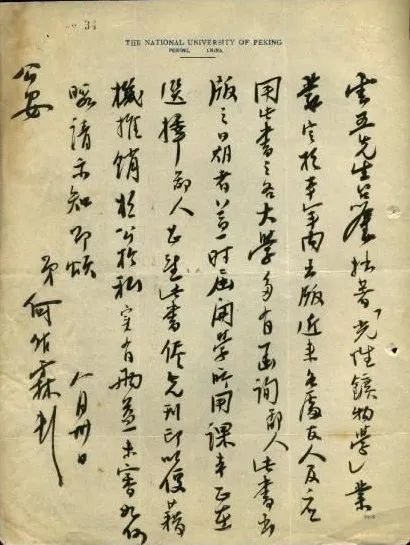 No 34
THE NATIONAL UNIVERSITY OF PEKING
PEKING, CHINA
雲五先生台鑒拙著「光性鑛物學」業
蒙定於本年内出版近来各處友人及
用此書之各大學多有函詢鄙人此書出
版之日期者蓋時屆開學所用課本正在
選擇鄙人望此書儘先刊印以便藉
機推銷於公於私實有兩益未審如何
暇請示知即頌
公安
弟何作霖
八月卅日